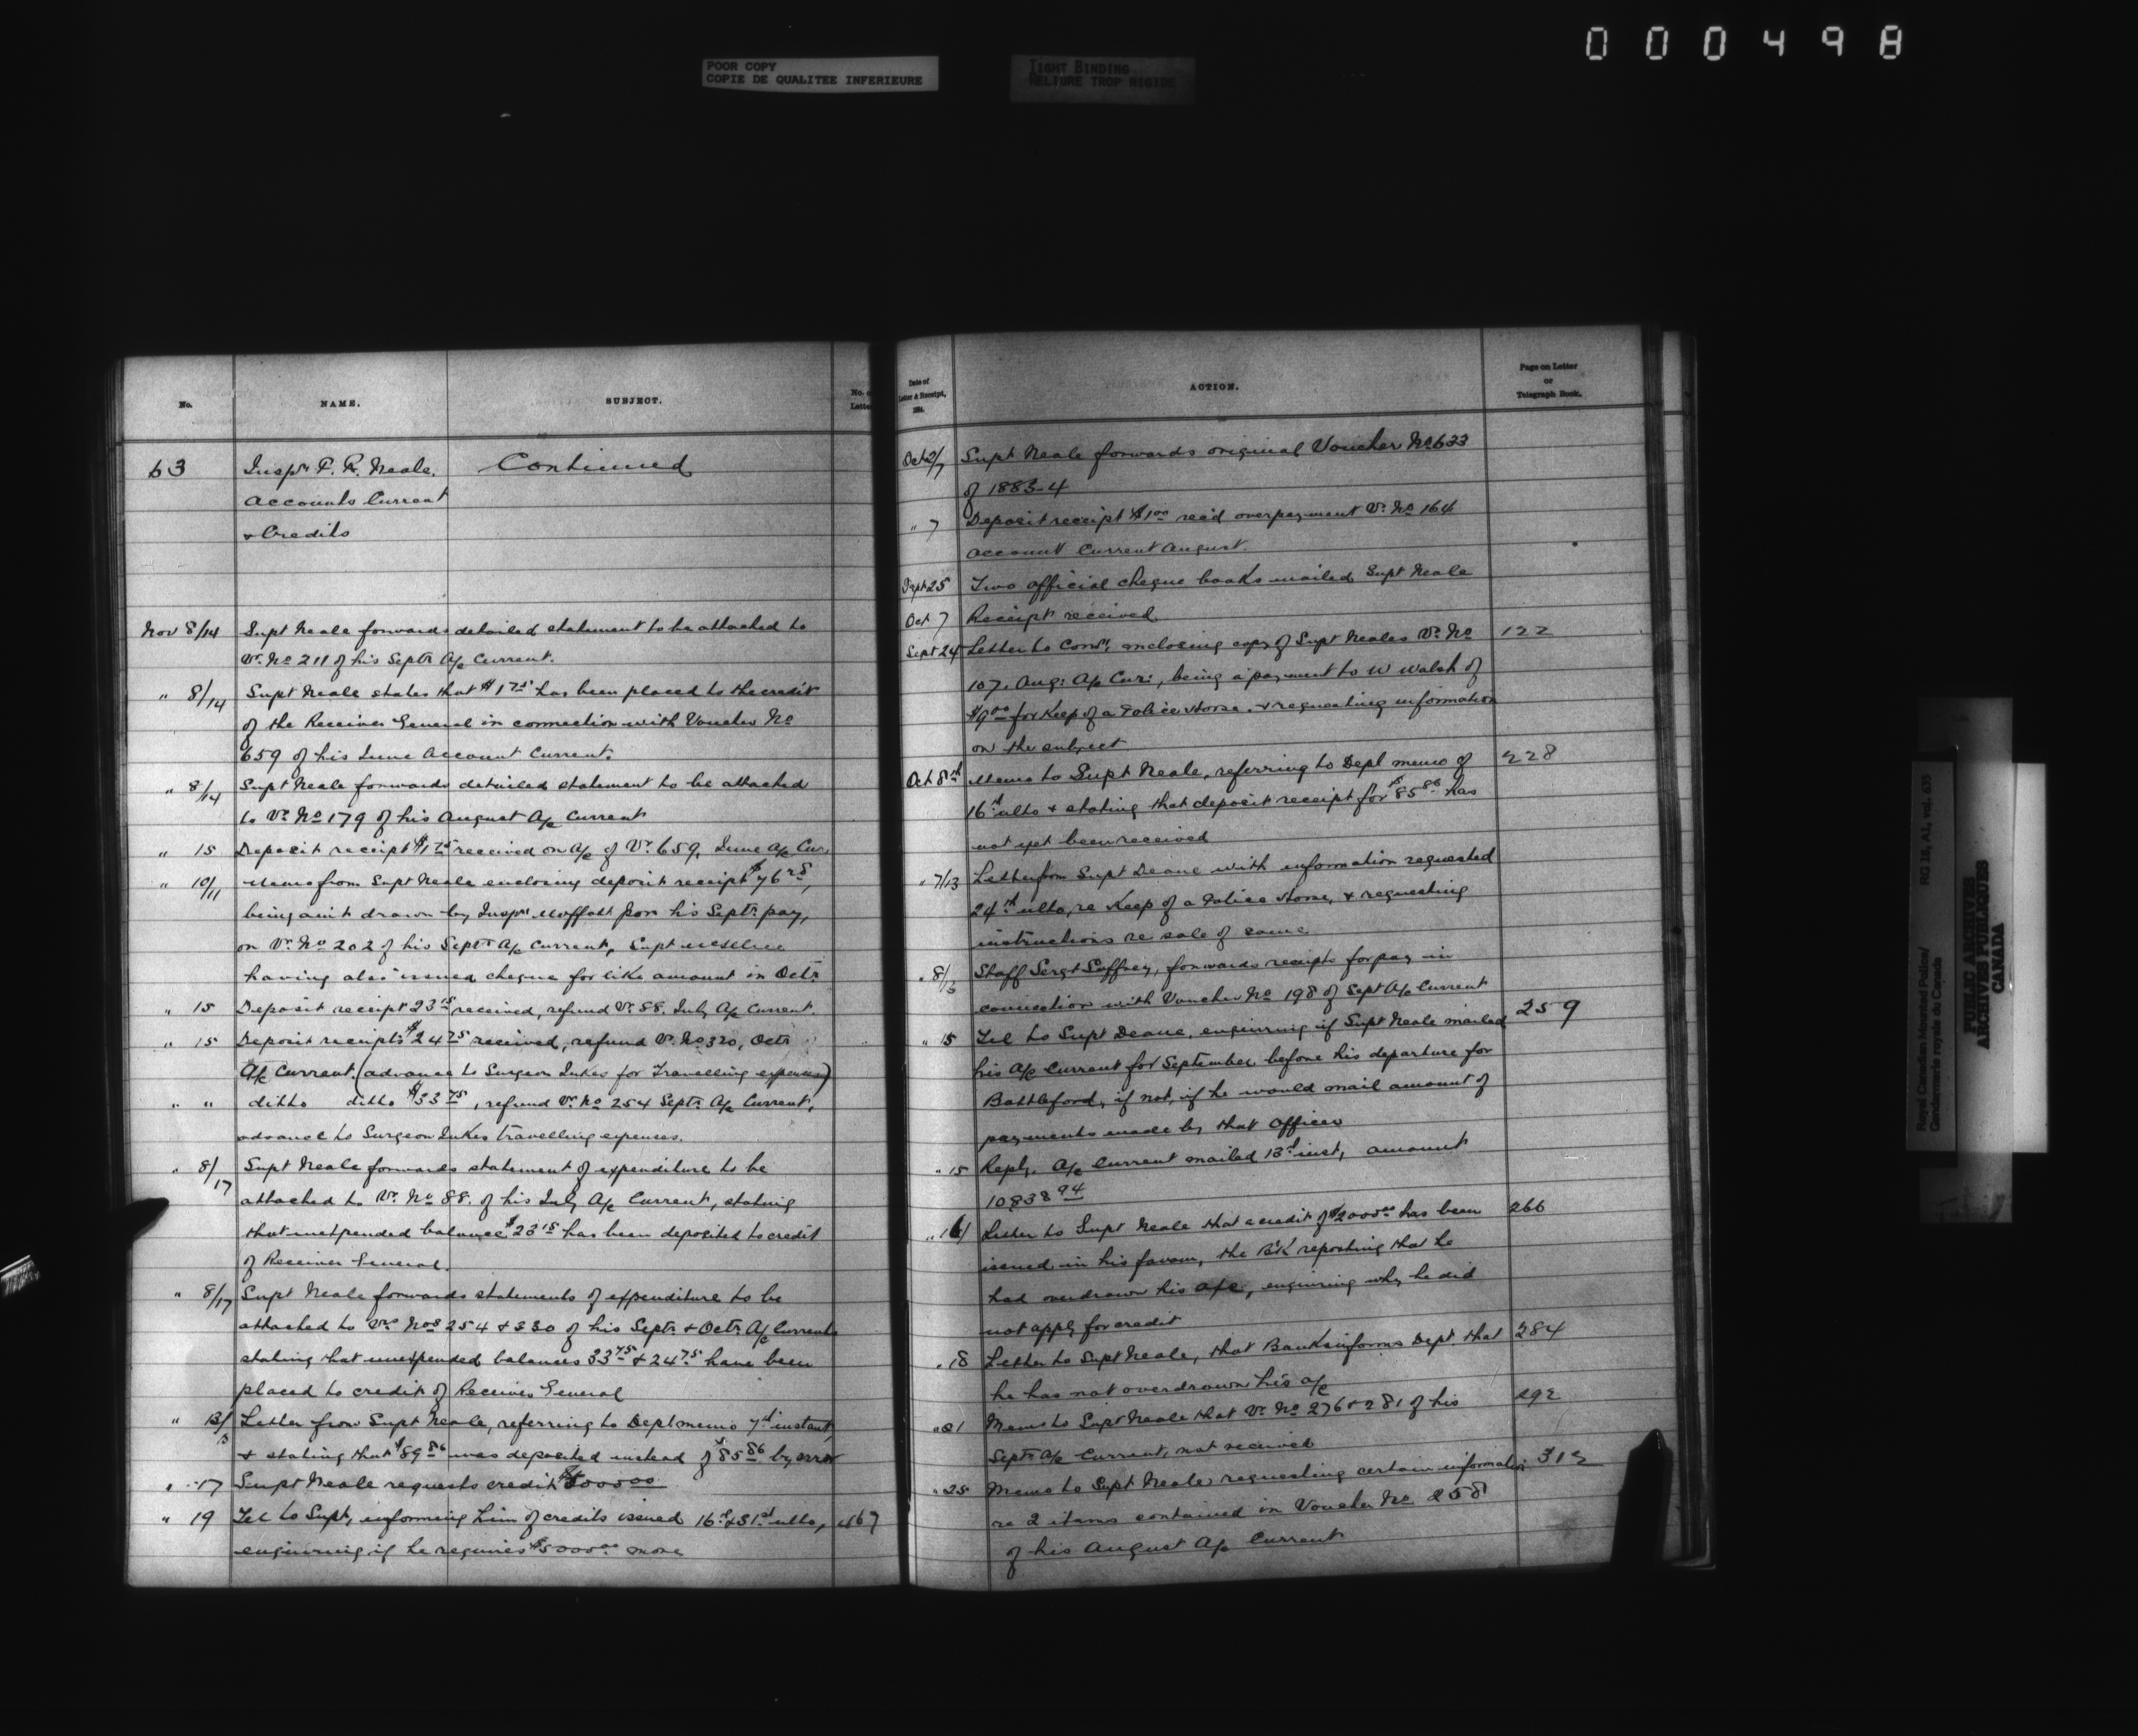 000498
POOR COPY
COPIE DE QUALITEE INFERIEURE
TIGHT BINDING
RELIURE TROP RIGIDE
No.
NAME.
SUBJECT.
No. of
Letter
63
Inspr P. R. Neale.
Continued
Accounts Current
& Credits
Nov 8/14 Supt Neale forwards detailed statement to be attached to
Vr. No 211 of his Septr A/c Current.
" 8/14 Supt Neale states that $1 75 has been placed to the credit
of the Receiver General in connection with Voucher No
659 of his June Account Current.
" 8/14 Supt Neale forwards detailed statement to be attached
to Vr. No 179 of his August A/c Current
" 15 Deposit receipt $1 75 received on A/c of Vr. 659, June A/c Cur.
" 10/11 Memo from Supt Neale enclosing deposit receipt $76
being amt drawn by Inspr Moffatt from his Septr. pay,
on Vr. No 202 of his Septr A/c Current, Supt
having also issued cheque for like amount in Octr.
" 15 Deposit receipt 23 15 received, refund Vr. 88. July A/c Current.
" 15 Deposit receipt $24 75 received, refund V. No 320, Octr
A/c Current. (advance to Surgeon Jukes for Travelling expenses)
" " ditto ditto $33 75, refund Vr. No 254 Septr. A/c Current,
advance to Surgeon Jukes travelling expenses.
" 8/17 Supt Neale forwards statement of expenditure to be
attached to Vr. No 88. of his July A/c Current, stating
that unexpended balance $23 15 has been deposited to credit
of Receiver General.
" 8/17 Supt Neale forwards statements of expenditure to be
attached to Vrs Nos 254 & 330 of his Septr. & Octr. A/c Currents
stating that unexpended balances 33 75 & 24 75 have been
placed to credit of Receiver General
" 13/ Letter from Supt Neale, referring to Dept memo 7th instant,
& stating that $89 86 was deposited instead of $85 86 by error
" 17 Supt Neale requests credit $5000 00
" 19 Tel to Supt, informing him of credits issued 16th & 31st ulto, 467
enquiring if he requires $5000 00 more
Date of
Letter & Receipt,
188 .
ACTION.
Page on Letter
or
Telegraph Book.
Oct 2/7 Supt Neale forwards original Voucher No 633
of 1883-4
" 7 Deposit receipt $1 00 rec'd overpayment Vr. No 164
Account Current August.
Sept 25 Two official cheque books mailed Supt Neale
Oct 7 Receipt received
Sept 24 Letter to Comr, enclosing copy of Supt Neales Vr. No 122
107, Aug: A/c Cur:, being a payment to W Walsh of
$9 00 for Keep of a Police Horse, & requesting information
on the subject
Oct 8th Memo to Supt Neale, referring to Dept memo of 228
16th ulto & stating that deposit receipt for $85 86 has
not yet been received
" 7/13 Letter from Supt Deane with information requested
24th ulto, re Keep of a Police Horse, & requesting
instructions re sale of same
" 8/13 Staff Sergt, forwards receipts for pay in
connection with Voucher No 198 of Sept A/c Current
" 15 Tel to Supt Deane, enquiring if Supt Neale mailed 259
his A/c Current for September before his departure for
Battleford, if not, if he would mail amount of
payments made by that Officer
" 15 Reply. A/c Current mailed 13th inst, amount
10838 94
" 16 Letter to Supt Neale that a credit of $2000 00 has been 266
issued in his favour, the B'k reporting that he
had overdrawn his a/c, enquiring why he did
not apply for credit
" 18 Letter to Supt Neale, that Bank informs Dept. that 284
he has not overdrawn his a/c
" 21 Memo to Supt Neale that Vr. No 276 & 281 of his 292
Septr A/c Current, not received
" 25 Memo to Supt Neale requesting certain information 313
re 2 items contained in Voucher No 258
of his August A/c Current
Royal Canadian Mounted Police/
Gendarmerie royale du Canada
RG 18, A1, vol. 635
PUBLIC ARCHIVES
ARCHIVES PUBLIQUES
CANADA